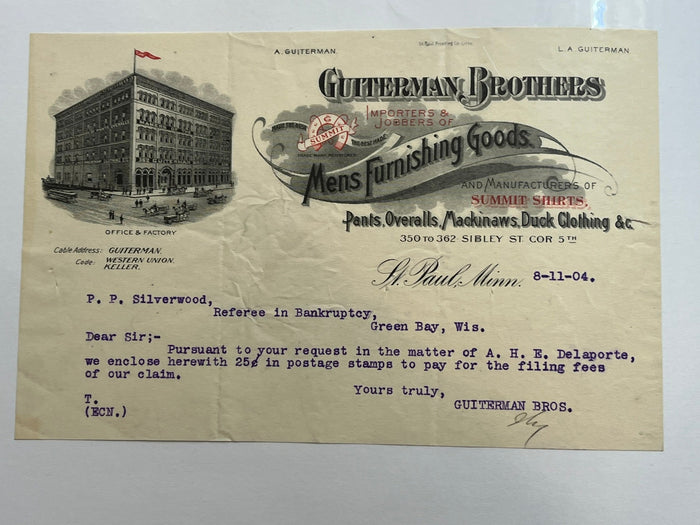 A. GUITERMAN.
L. A. GUITERMAN
GUITERMAN BROTHERS
IMPORTERS &
JOBBERS OF
G
SUMMIT
TRADE MARK REGISTERED
Mens Furnishing Goods.
AND MANUFACTURERS OF
SUMMIT SHIRTS,
Pants, Overalls, Mackinaws, Duck Clothing &c
350 TO 362 SIBLEY ST. COR 5TH
OFFICE & FACTORY
Cable Address: GUITERMAN.
Code: WESTERN UNION.
KELLER.
St. Paul, Minn. 8-11-04.
P. P. Silverwood,
Referee in Bankruptcy,
Green Bay, Wis.
Dear Sir;-
Pursuant to your request in the matter of A. H. E. Delaporte,
we enclose herewith 25¢ in postage stamps to pay for the filing fees
of our claim.
Yours truly,
T.
(ECN.)
GUITERMAN BROS.